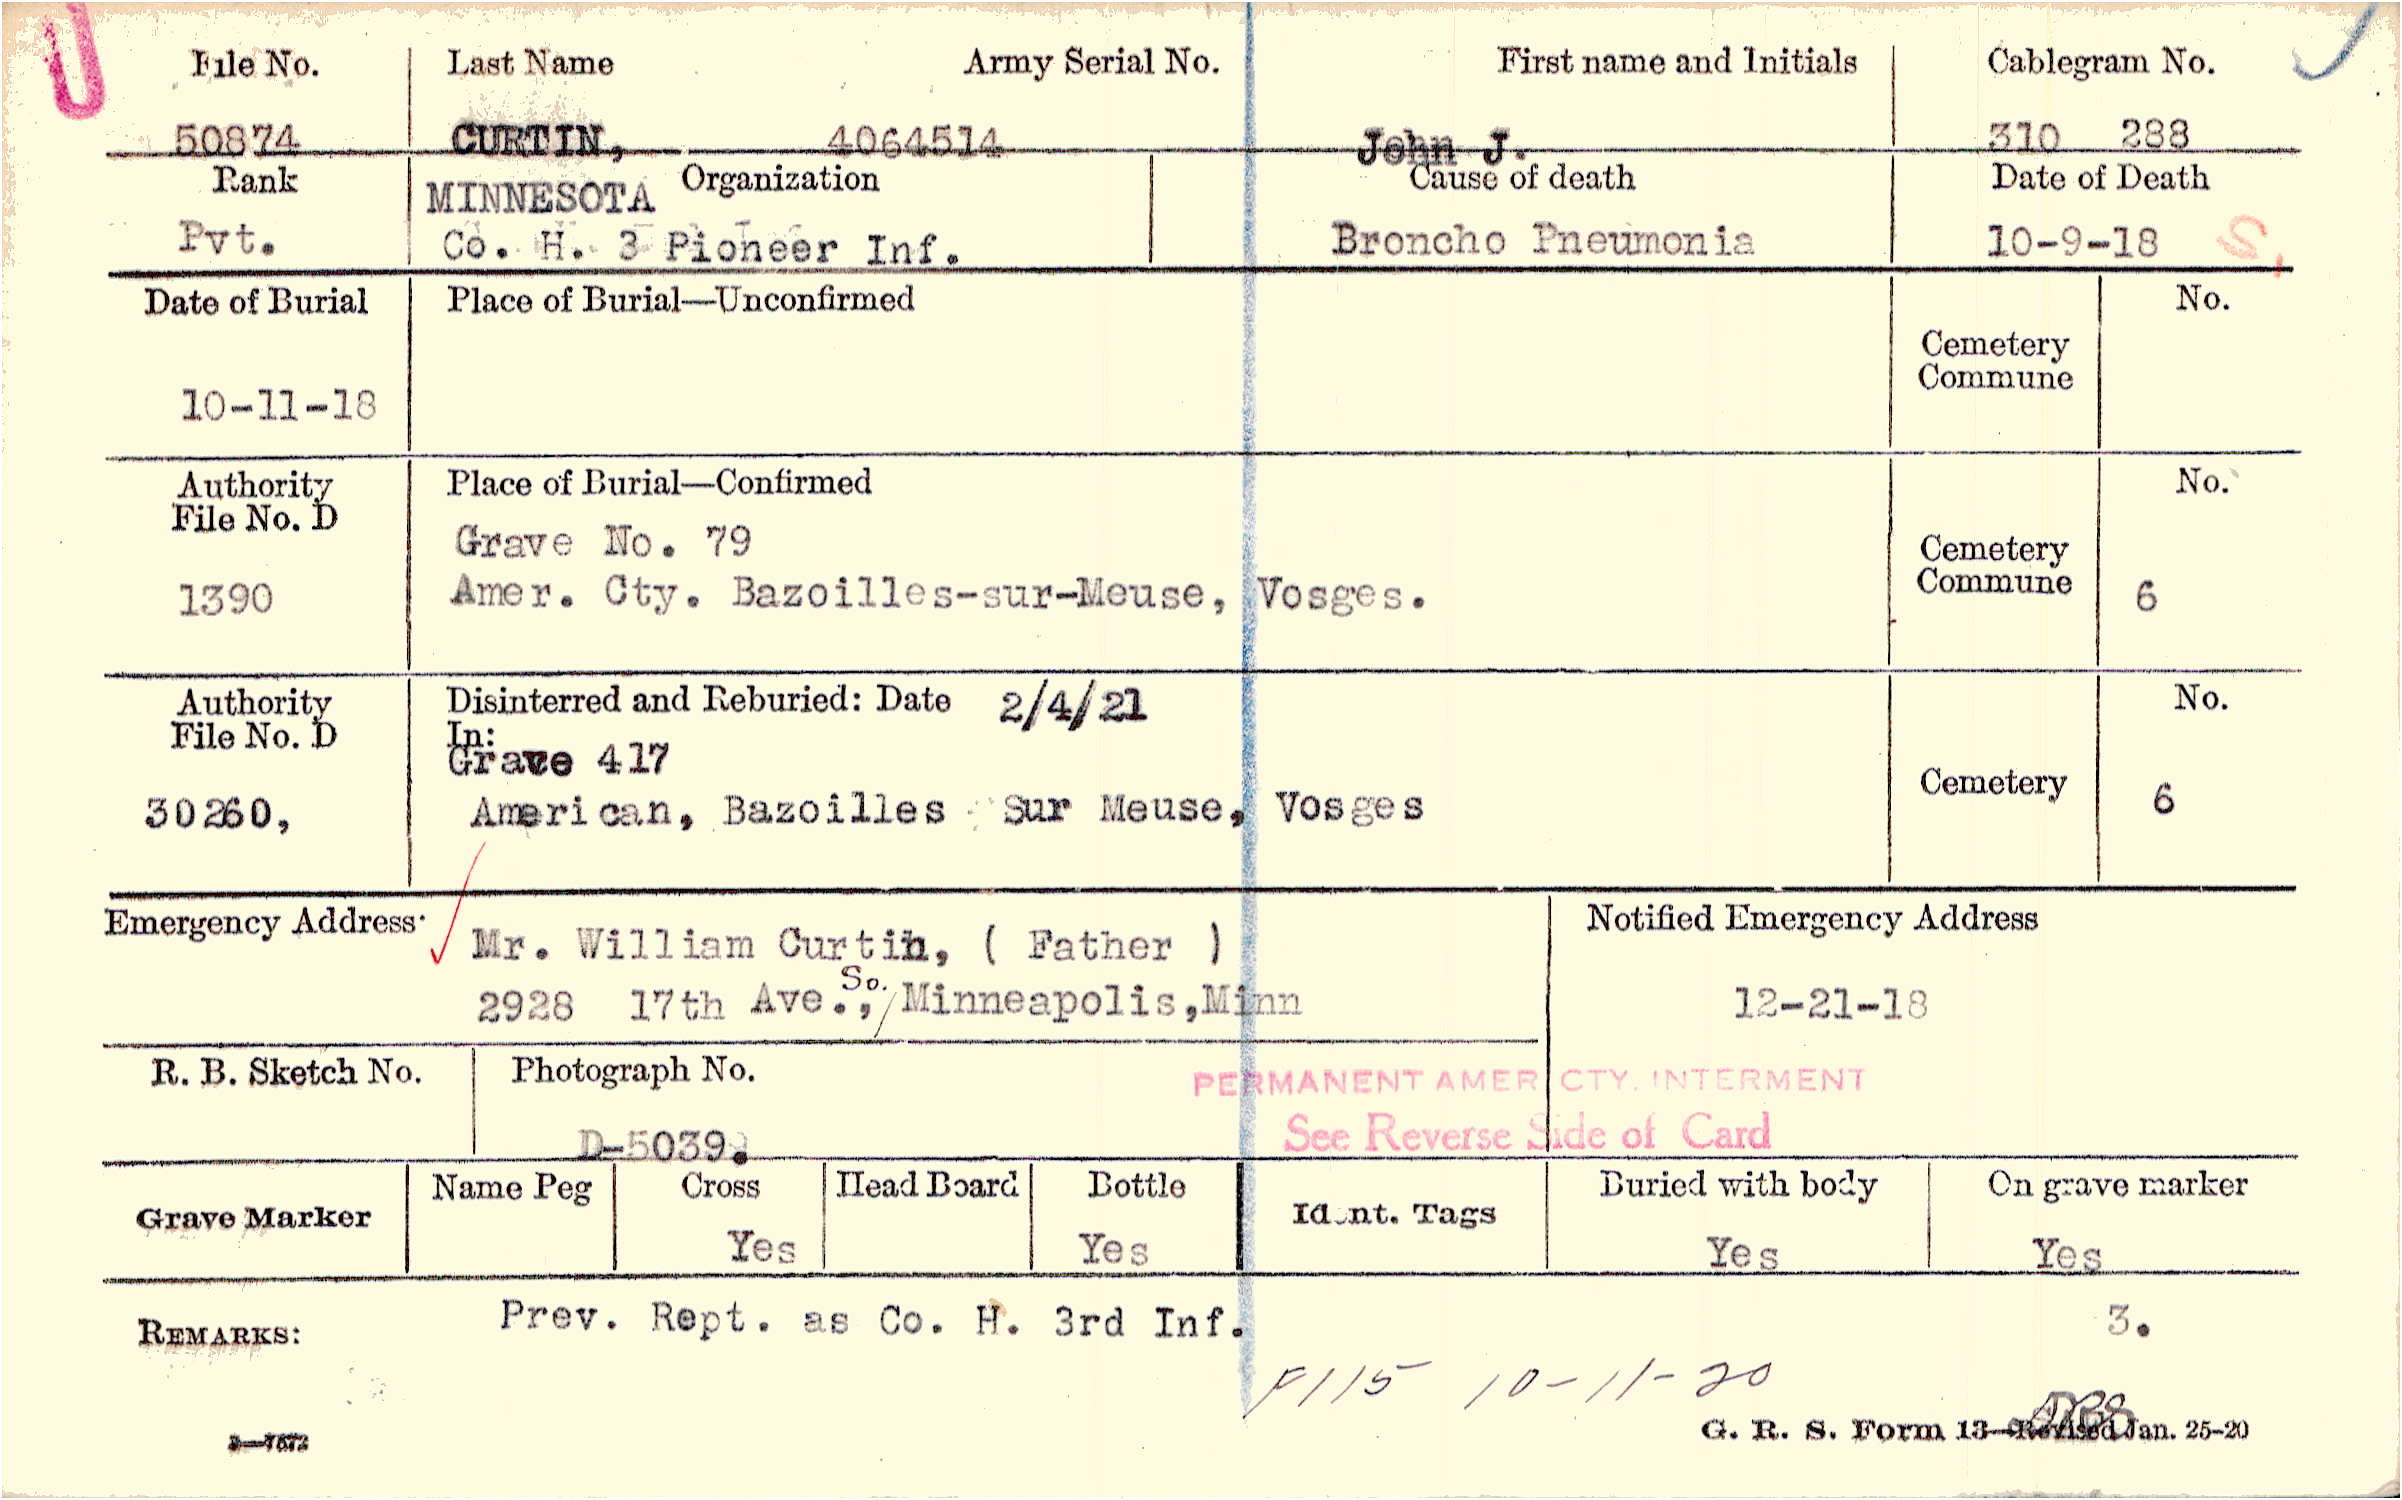 File No. Last Name Army Serial No. First name and Initials Cablegram No.
50874 CURTIN, 4064514 John J. 310 288
Rank MINNESOTA Organization Cause of death Date of Death
Pvt. Co. H. 3 Pioneer Inf. Broncho Pneumonia 10-9-18
Date of Burial Place of Burial—Unconfirmed No.
Cemetery
Commune
10-11-18
Authority Place of Burial—Confirmed No.
File No. D
Grave No. 79 Cemetery
1390 Amer. Cty. Bazoilles-sur-Meuse, Vosges. Commune 6
Authority Disinterred and Reburied: Date 2/4/21 No.
File No. D In:
Grave 417
30260, American, Bazoilles Sur Meuse, Vosges Cemetery 6
Emergency Address Notified Emergency Address
Mr. William Curtin, ( Father )
2928 17th Ave., So. Minneapolis,Minn 12-21-18
R. B. Sketch No. Photograph No.
PERMANENT AMER CTY. INTERMENT
See Reverse Side of Card
D-5039.
Grave Marker Name Peg Cross Head Board Bottle Ident. Tags Buried with body On grave marker
Yes Yes Yes Yes
REMARKS: Prev. Rept. as Co. H. 3rd Inf. 3.
F115 10-11-20
3—7572 G. R. S. Form 13—Revised Jan. 25-20